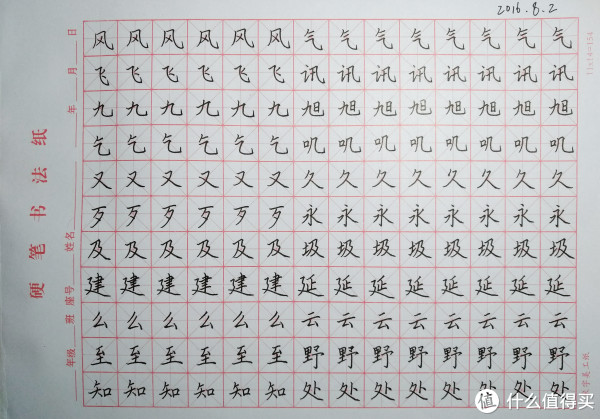 2016.8.2
风风风风风风气气气气气气气气
飞飞飞飞飞飞讯讯讯讯讯讯讯讯
九九九九九九旭旭旭旭旭旭旭旭
乞乞乞乞乞乞叽叽叽叽叽叽叽叽
又又又又又又久久久久久久久久
歹歹歹歹歹歹永永永永永永永永
及及及及及及圾圾圾圾圾圾圾圾
建建建建建建延延延延延延延延
么么么么么么云云云云云云云云
至至至至至至野野野野野野野野
知知知知知知处处处处处处处处
硬笔书法纸
年级 班 座号 姓名 年 月 日
11x14=154
字美工纸
值 什么值得买